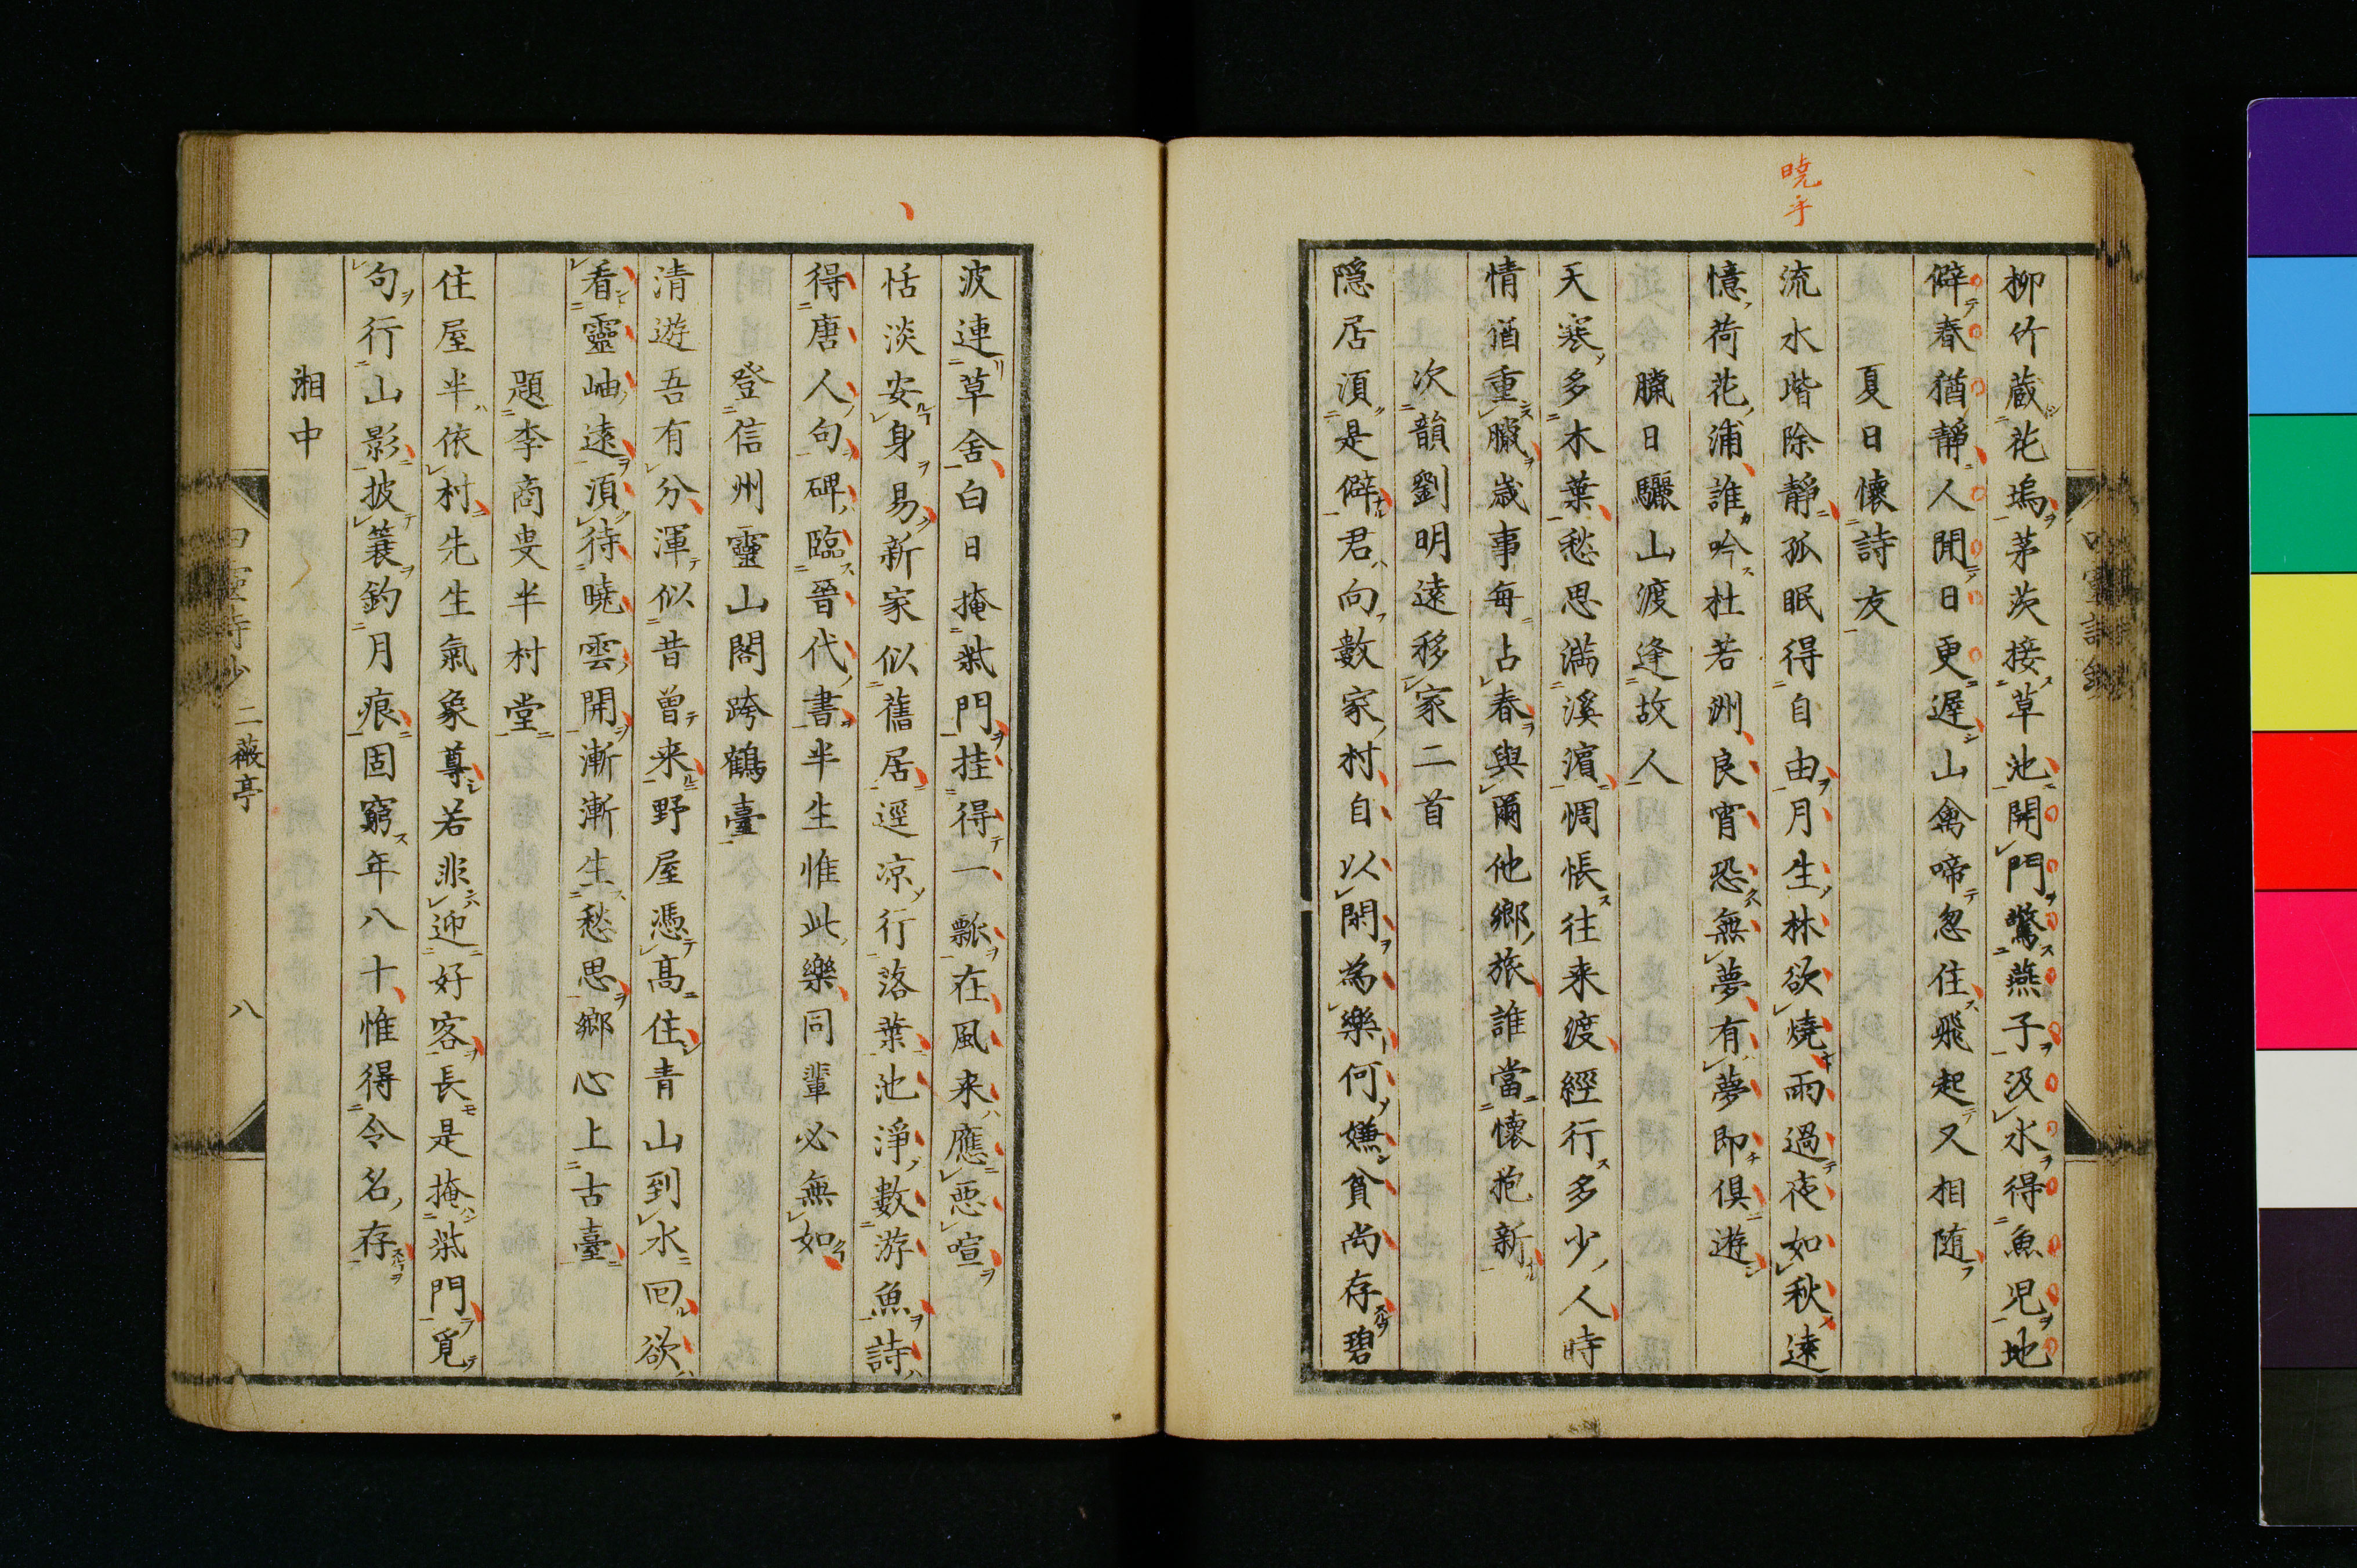 暁乎
柳竹蔵花塢茅茨接草池開門驚燕子汲水得魚児地
僻春猶靜人閒日更遲山禽啼忽住飛起又相随
夏日懷詩友
流水堦除靜孤眠得自由月生林欲燒雨過夜如秋遠
憶荷花浦誰吟杜若洲良宵恐無夢有夢即俱遊
臘日驪山渡逢故人
天寒多木葉愁思滿溪濵惆悵往来渡經行多少人時
情酋重臘歳事每占春與爾他鄉旅誰當懷抱新
次韻劉明遠移家二首
隠居湏是僻君向數家村自以閑為樂何嫌貧尚存碧
波連草舍白日掩柴門挂得一瓢在風来應悪喧
恬淡安身易新家似舊居逕凉行落葉池淨數游魚詩
得唐人句碑臨晉代書半生惟此樂同輩必無如
登信州靈山閣跨鶴臺
清遊吾有分渾似昔曾来野屋憑高住青山到水回欲
看靈岫遠湏待曉雲開漸漸生愁思鄉心上古臺
題李商叟半村堂
住屋半依村先生氣象尊若非迎好客長是掩柴門覓
句行山影披蓑釣月痕固窮年八十惟得令名存
湘中
四靈詩鈔 二薇亭 八